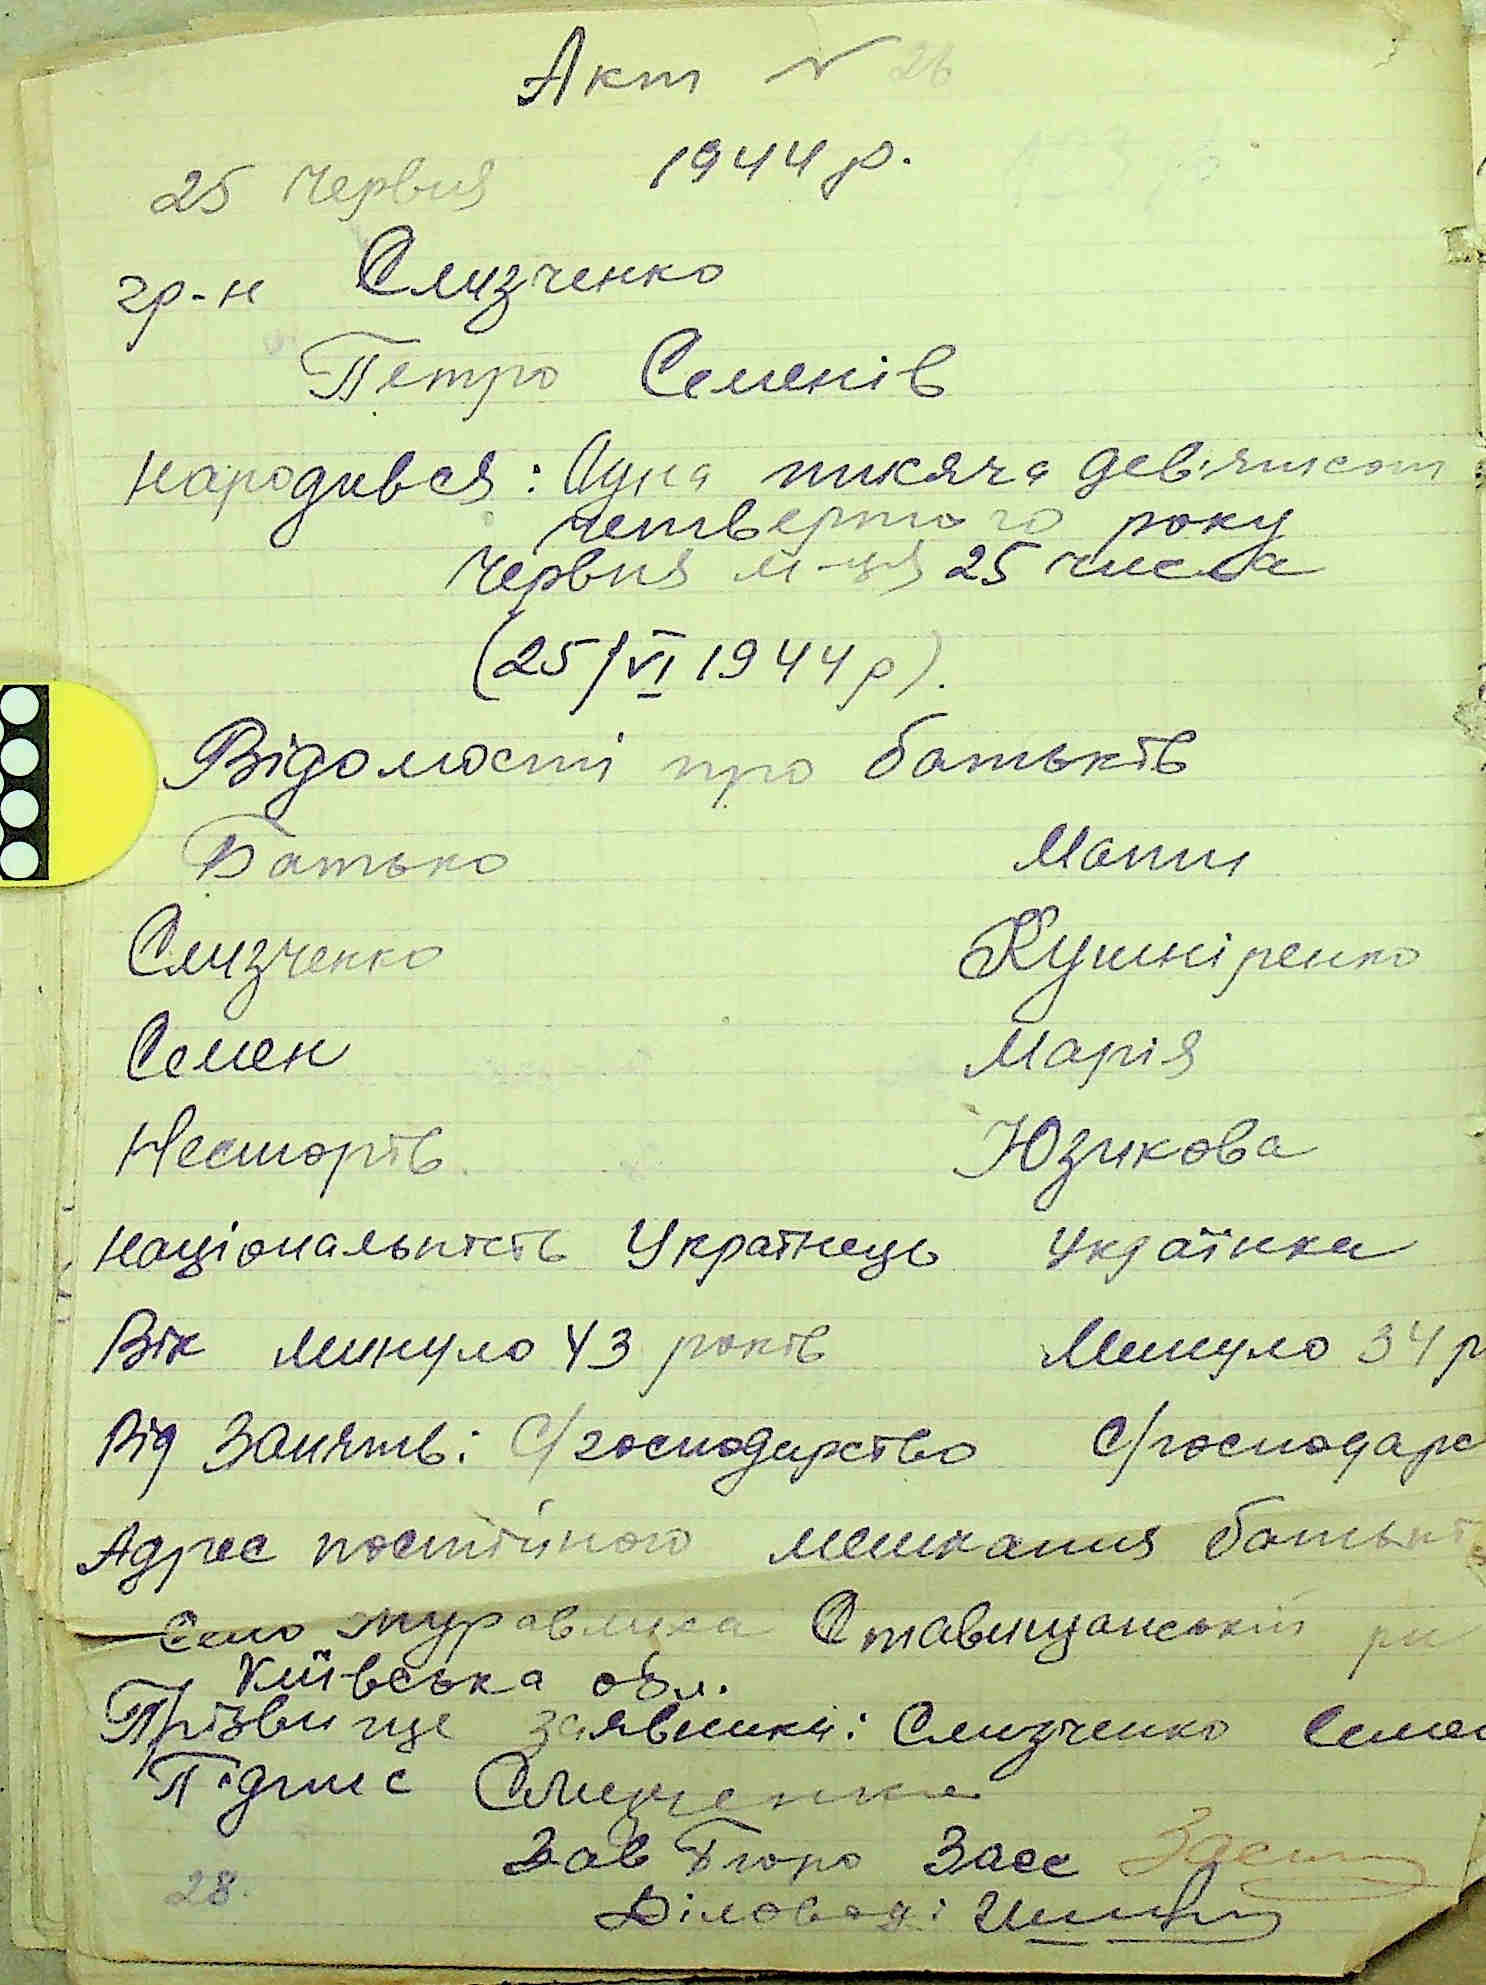 Акт N 26
1944 р.
25 червня
гр-н Слизченко
Петро Семенів
народився: Одна тисяча девятсот
четвертого року
червня м-ця 25 числа
(25/VI 1944 р).
Відомості про батьків
Батько Мати
Слизченко Кушніренко
Семен Марія
Несторів Юзикова
національність Українець Українка
Вік минуло 43 років Минуло 34 р
Від Занять: С/господарство С/господарс
Адрес постійного мешкання батькі
Село Журавлиха Ставищанський р
Київська обл.
Прізвище заявника: Слизченко Семен
Підпис Слизченко
Зав Бюро Засс
Діловод:
28.